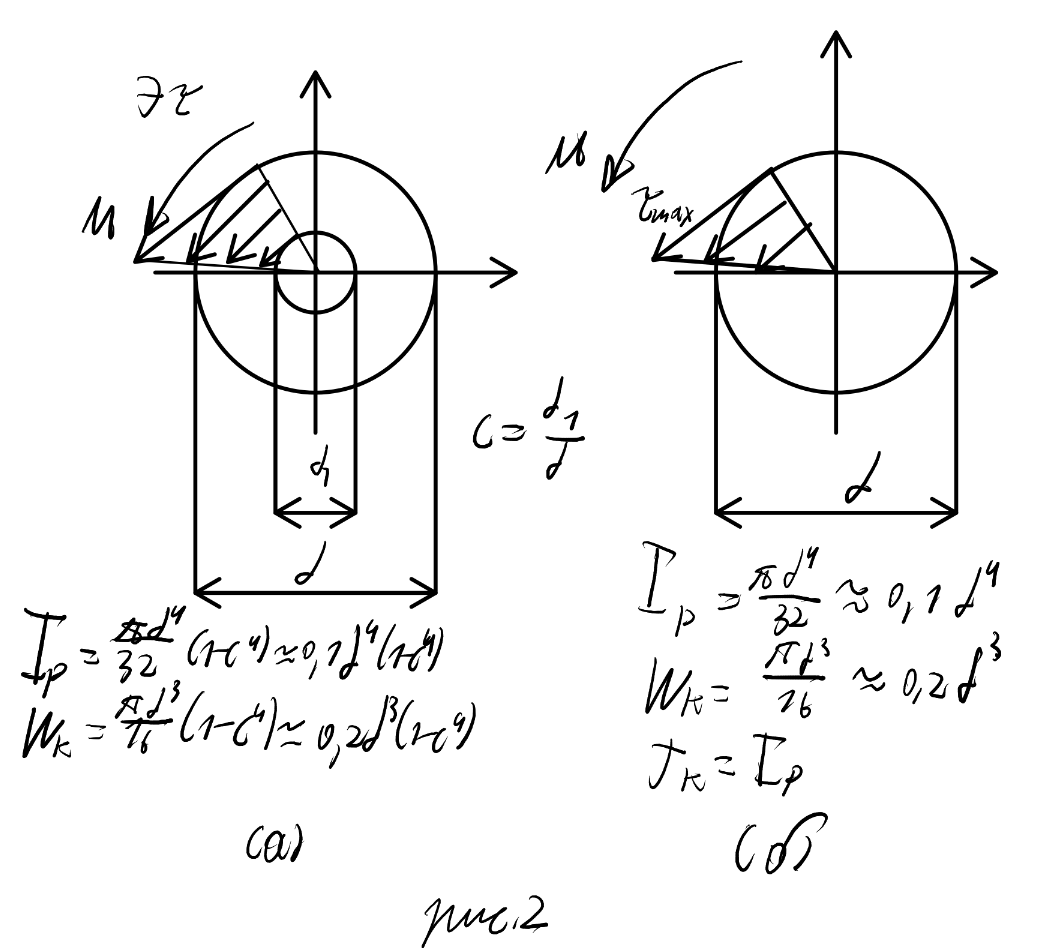 Эτ
M
d₁
d
C = d₁/d
I_p = πd⁴/32 (1-c⁴) ≈ 0,1d⁴(1-c⁴)
W_к = πd³/16 (1-c⁴) ≈ 0,2d³(1-c⁴)
(а)
M
τ_max
d
I_p = πd⁴/32 ≈ 0,1d⁴
W_к = πd³/16 ≈ 0,2d³
J_к = I_p
(б)
рис.2